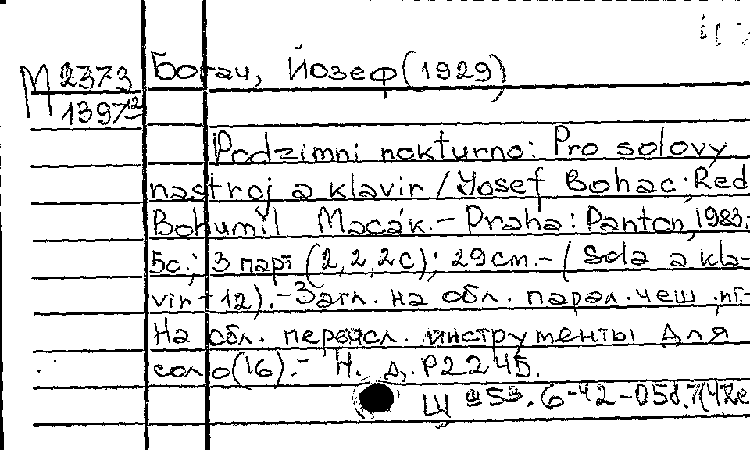 М 2373
1397
Богач, Йозеф (1929)
Podzimni nokturno: Pro solovy
nastroj a klavir / Yosef Bohac; Red
Bohumil Macák. - Praha: Panton, 1983;
5с.; 3 парт (2,2,2с); 29см. - (Sola a kla-
vir - 12). - Загл. на обл. парал. чеш.
На обл. перечисл. инструменты для
соло (16). - Н. д. P2245.
Щ 953.6-42-058.7